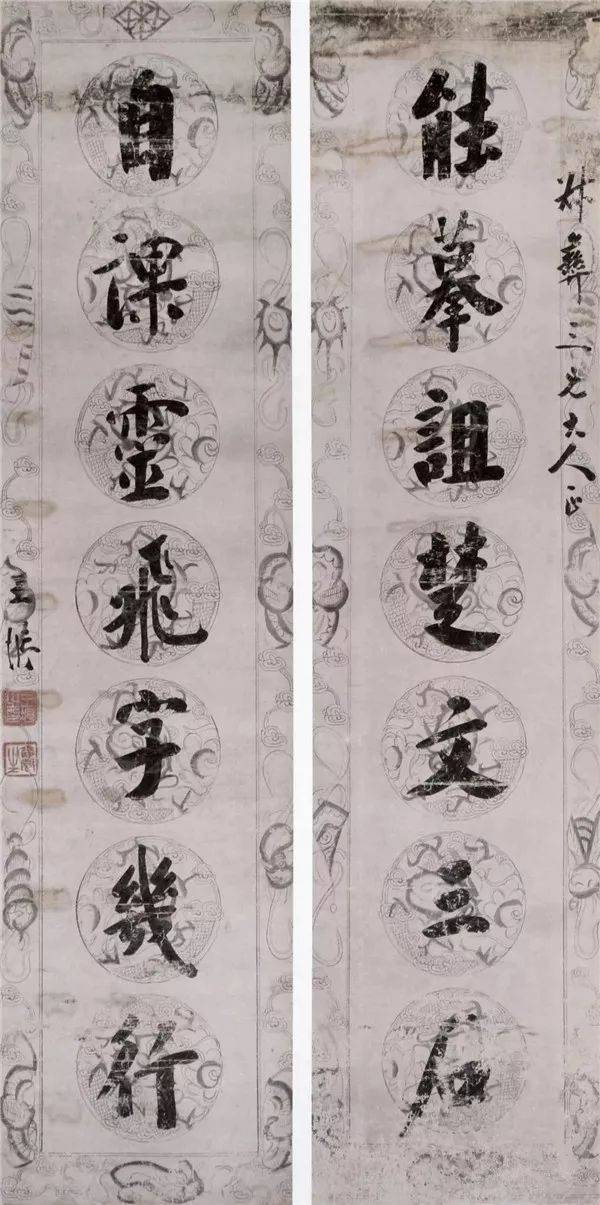 叔彝三兄大人正
能摹詛楚文三石
自課靈飛字幾行
王拯